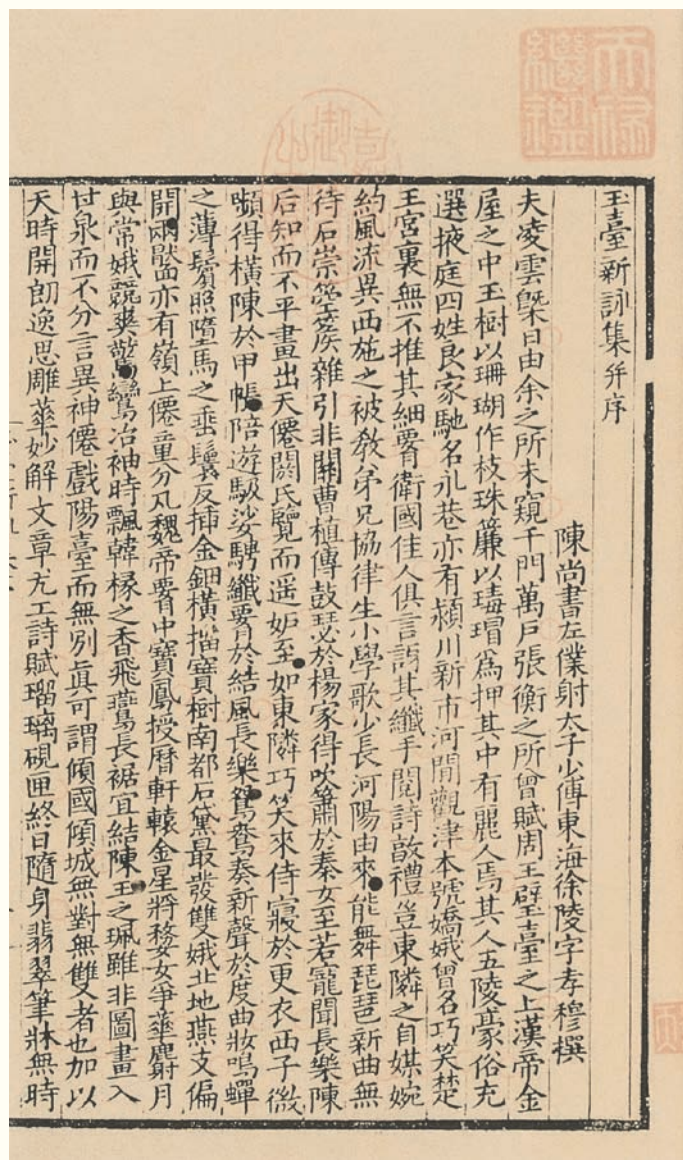 玉臺新詠集并序
陳尚書左僕射太子少傅東海徐陵字孝穆撰
夫凌雲槩日由余之所未窺千門萬戶張衡之所曾賦周王璧臺之上漢帝金
屋之中玉樹以珊瑚作枝珠簾以瑇瑁爲押其中有麗人焉其人五陵豪俗充
選掖庭四姓良家馳名永巷亦有潁川新市河間觀津本號嬌娥曾名巧笑楚
王宮裏無不推其細腰衛國佳人俱言訝其纖手閱詩敦禮豈東隣之自媒婉
約風流異西施之被敎弟兄協律生小學歌少長河陽由來能舞琵琶新曲無
待石崇箜篌雜引非關曹植傳鼓瑟於楊家得吹簫於秦女至若寵聞長樂陳
后知而不平畫出天僊閼氏覽而遥妬至如東隣巧笑來侍寢於更衣西子微
嚬得橫陳於甲帳陪遊馺娑騁纖腰於結風長樂鴛鴦奏新聲於度曲妝鳴蟬
之薄鬢照墮馬之垂鬟反揷金鈿橫㨨寶樹南都石黛最發雙娥北地燕支偏
開兩靨亦有嶺上僊童分丸魏帝腰中寶鳳授曆軒轅金星將婺女爭華麝月
與常娥競爽驚鸞冶袖時飄韓掾之香飛鷰長裾宜結陳王之珮雖非圖畫入
甘泉而不分言異神僊戲陽臺而無別眞可謂傾國傾城無對無雙者也加以
天時開朗逸思雕華妙解文章尤工詩賦瑠璃硯匣終日隨身翡翠筆牀無時
天祿繼鑑